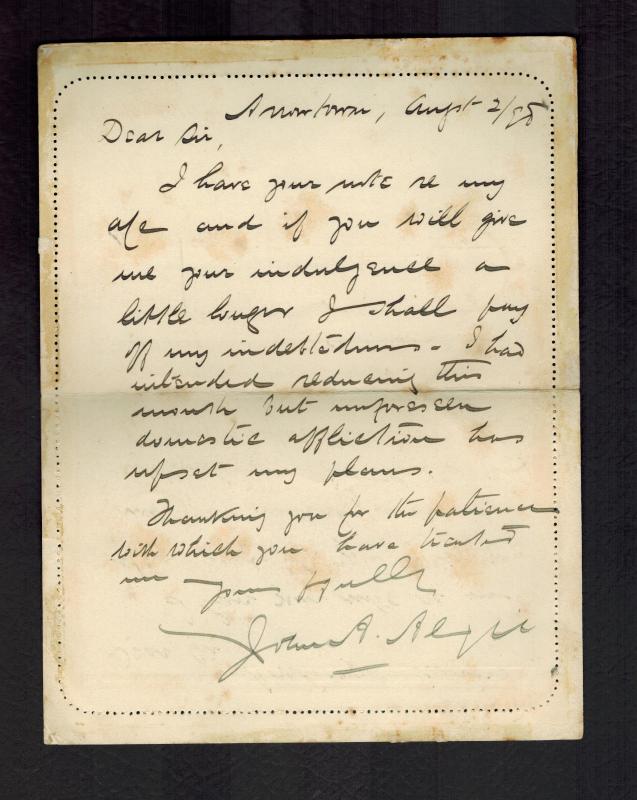 Arrowtown, Augst 2/98
Dear Sir,
I have your note re my
a/c and if you will give
me your indulgence a
little longer I shall pay
off my indebtedness - I had
intended reducing this
month but unforeseen
domestic affliction has
upset my plans.
Thanking you for the patience
with which you have treated
me Yours ffully
John A.